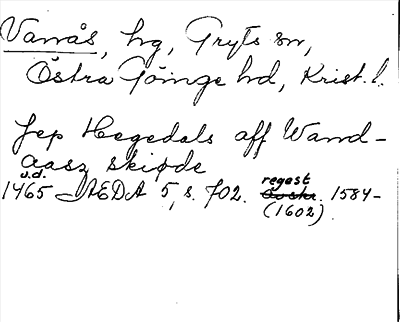 Vanås, hg, Gryts sn,
Östra Göinge hd, Krist. l.
Jep Hegedals aff Wand-
aasz skiøde
u.d.
1465 ÆDA 5, s. 702. regest 1584-
(1602)